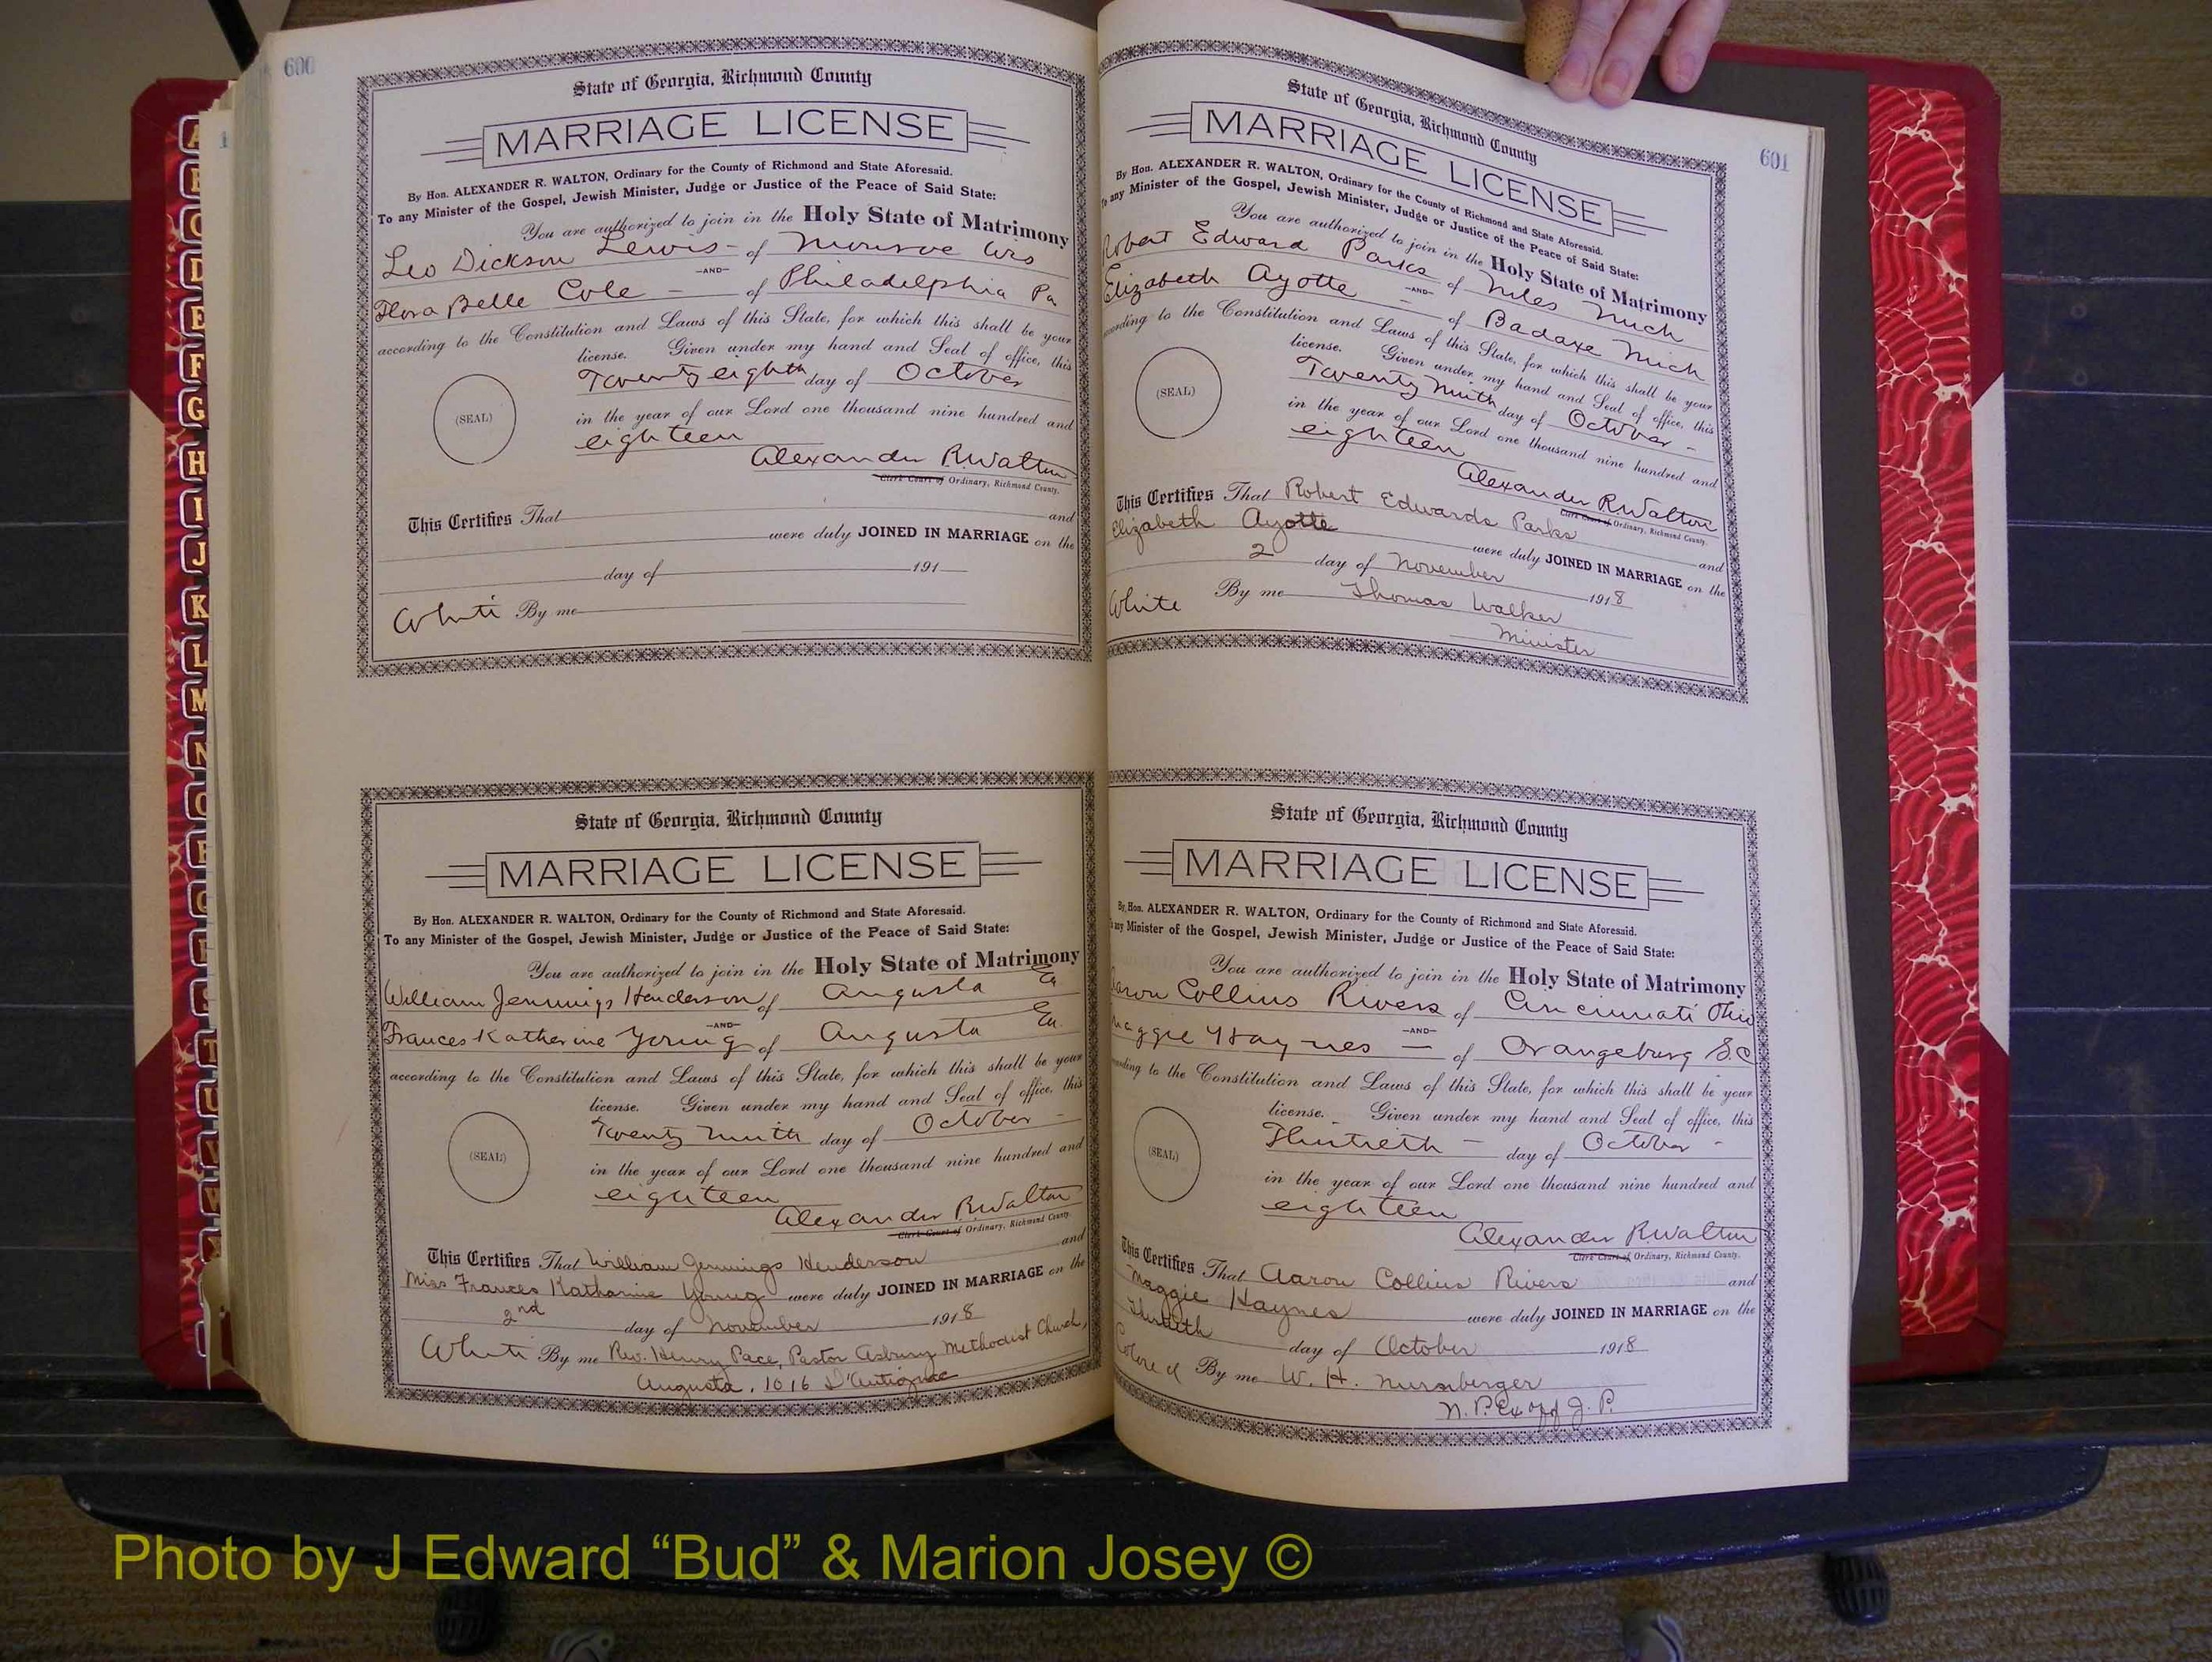 600
State of Georgia, Richmond County
MARRIAGE LICENSE
By Hon. ALEXANDER R. WALTON, Ordinary for the County of Richmond and State Aforesaid.
To any Minister of the Gospel, Jewish Minister, Judge or Justice of the Peace of Said State:
You are authorized to join in the Holy State of Matrimony
Leo Dickson Lewis - of Monroe Wis
-AND-
Flora Belle Cole - of Philadelphia Pa
according to the Constitution and Laws of this State, for which this shall be your
license. Given under my hand and Seal of office, this
Twenty eighth day of October
(SEAL)
in the year of our Lord one thousand nine hundred and
eighteen
Alexander R Walton
Clerk Court of Ordinary, Richmond County.
This Certifies That and
were duly JOINED IN MARRIAGE on the
day of 191
White By me
State of Georgia, Richmond County
MARRIAGE LICENSE
By Hon. ALEXANDER R. WALTON, Ordinary for the County of Richmond and State Aforesaid.
To any Minister of the Gospel, Jewish Minister, Judge or Justice of the Peace of Said State:
You are authorized to join in the Holy State of Matrimony
William Jennings Henderson of Augusta Ga
-AND-
Frances Katherine Young of Augusta Ga.
according to the Constitution and Laws of this State, for which this shall be your
license. Given under my hand and Seal of office, this
Twenty ninth day of October -
(SEAL)
in the year of our Lord one thousand nine hundred and
eighteen
Alexander R Walton
Clerk Court of Ordinary, Richmond County.
This Certifies That William Jennings Henderson and
Miss Frances Katharine Young were duly JOINED IN MARRIAGE on the
2nd day of November 1918
White By me Rev. Henry Pace, Pastor Asbury Methodist Church,
Augusta, 1016 D'Antignac
601
State of Georgia, Richmond County
MARRIAGE LICENSE
By Hon. ALEXANDER R. WALTON, Ordinary for the County of Richmond and State Aforesaid.
To any Minister of the Gospel, Jewish Minister, Judge or Justice of the Peace of Said State:
You are authorized to join in the Holy State of Matrimony
Robert Edward Parks of Niles Mich
-AND-
Elizabeth Ayotte - of Badaxe Mich
according to the Constitution and Laws of this State, for which this shall be your
license. Given under my hand and Seal of office, this
Twenty ninth day of October -
(SEAL)
in the year of our Lord one thousand nine hundred and
eighteen
Alexander R Walton
Clerk Court of Ordinary, Richmond County.
This Certifies That Robert Edwards Parks and
Elizabeth Ayotte were duly JOINED IN MARRIAGE on the
2 day of November 1918
White By me Thomas Walker
Minister
State of Georgia, Richmond County
MARRIAGE LICENSE
By Hon. ALEXANDER R. WALTON, Ordinary for the County of Richmond and State Aforesaid.
any Minister of the Gospel, Jewish Minister, Judge or Justice of the Peace of Said State:
You are authorized to join in the Holy State of Matrimony
Aaron Collins Rivers of Cincinnati Ohio
-AND-
Maggie Haynes - of Orangeburg S.C
according to the Constitution and Laws of this State, for which this shall be your
license. Given under my hand and Seal of office, this
Thirtieth - day of October -
(SEAL)
in the year of our Lord one thousand nine hundred and
eighteen
Alexander R Walton
Clerk Court of Ordinary, Richmond County.
This Certifies That Aaron Collins Rivers and
Maggie Haynes were duly JOINED IN MARRIAGE on the
Thirtieth day of October 1918
Colored By me W. H. Nurnberger
N. P. Ex off J. P.
A
B
C
D
E
F
G
H
I
J
K
L
M
N
O
P
Q
R
S
T
U
V
W
Photo by J Edward “Bud” & Marion Josey ©